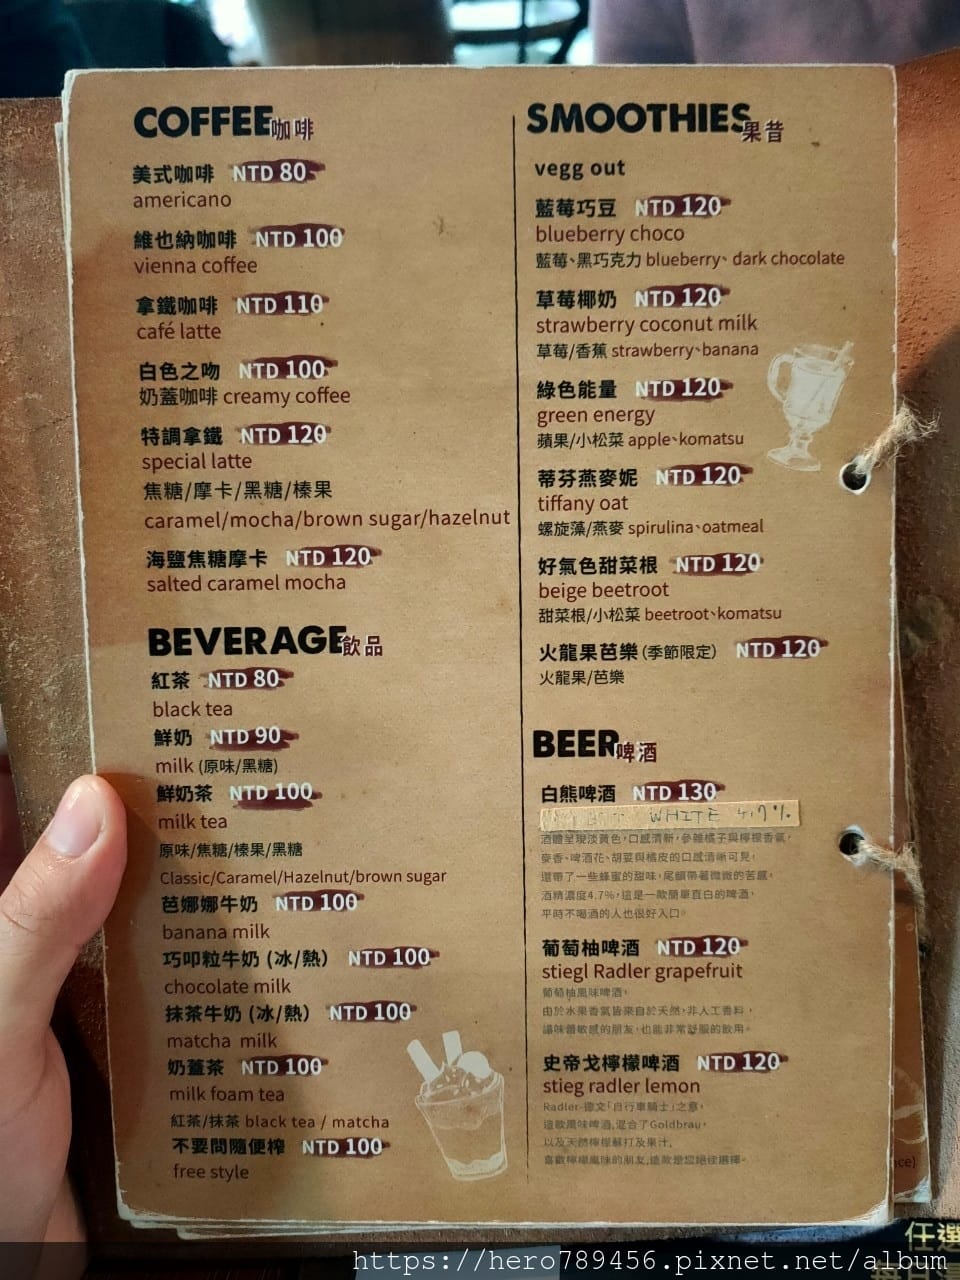 COFFEE咖啡
美式咖啡 NTD 80
americano
維也納咖啡 NTD 100
vienna coffee
拿鐵咖啡 NTD 110
café latte
白色之吻 NTD 100
奶蓋咖啡 creamy coffee
特調拿鐵 NTD 120
special latte
焦糖/摩卡/黑糖/榛果
caramel/mocha/brown sugar/hazelnut
海鹽焦糖摩卡 NTD 120
salted caramel mocha
BEVERAGE飲品
紅茶 NTD 80
black tea
鮮奶 NTD 90
milk (原味/黑糖)
鮮奶茶 NTD 100
milk tea
原味/焦糖/榛果/黑糖
Classic/Caramel/Hazelnut/brown sugar
芭娜娜牛奶 NTD 100
banana milk
巧叩粒牛奶 (冰/熱) NTD 100
chocolate milk
抹茶牛奶 (冰/熱) NTD 100
matcha milk
奶蓋茶 NTD 100
milk foam tea
紅茶/抹茶 black tea / matcha
不要問隨便榨 NTD 100
free style
SMOOTHIES果昔
vegg out
藍莓巧豆 NTD 120
blueberry choco
藍莓、黑巧克力 blueberry、dark chocolate
草莓椰奶 NTD 120
strawberry coconut milk
草莓/香蕉 strawberry、banana
綠色能量 NTD 120
green energy
蘋果/小松菜 apple、komatsu
蒂芬燕麥妮 NTD 120
tiffany oat
螺旋藻/燕麥 spirulina、oatmeal
好氣色甜菜根 NTD 120
beige beetroot
甜菜根/小松菜 beetroot、komatsu
火龍果芭樂 (季節限定) NTD 120
火龍果/芭樂
BEER啤酒
白熊啤酒 NTD 130
WHITE 4.7%
酒體呈現淡黃色，口感清新，參雜橘子與檸檬香氣，
麥香、啤酒花、胡荽與橘皮的口感清晰可見，
還帶了一些蜂蜜的甜味，尾韻帶著微微的苦感，
酒精濃度4.7%，這是一款簡單直白的啤酒，
平時不喝酒的人也很好入口。
葡萄柚啤酒 NTD 120
stiegl Radler grapefruit
葡萄柚風味啤酒，
由於水果香氣皆來自於天然，非人工香料，
讓味蕾敏感的朋友，也能非常舒服的飲用。
史帝戈檸檬啤酒 NTD 120
stieg radler lemon
Radler-德文「自行車騎士」之意，
這款風味啤酒，混合了Goldbrau，
以及天然檸檬蘇打及果汁，
喜歡檸檬風味的朋友，這款是您絕佳選擇。
任選
https://hero789456.pixnet.net/album